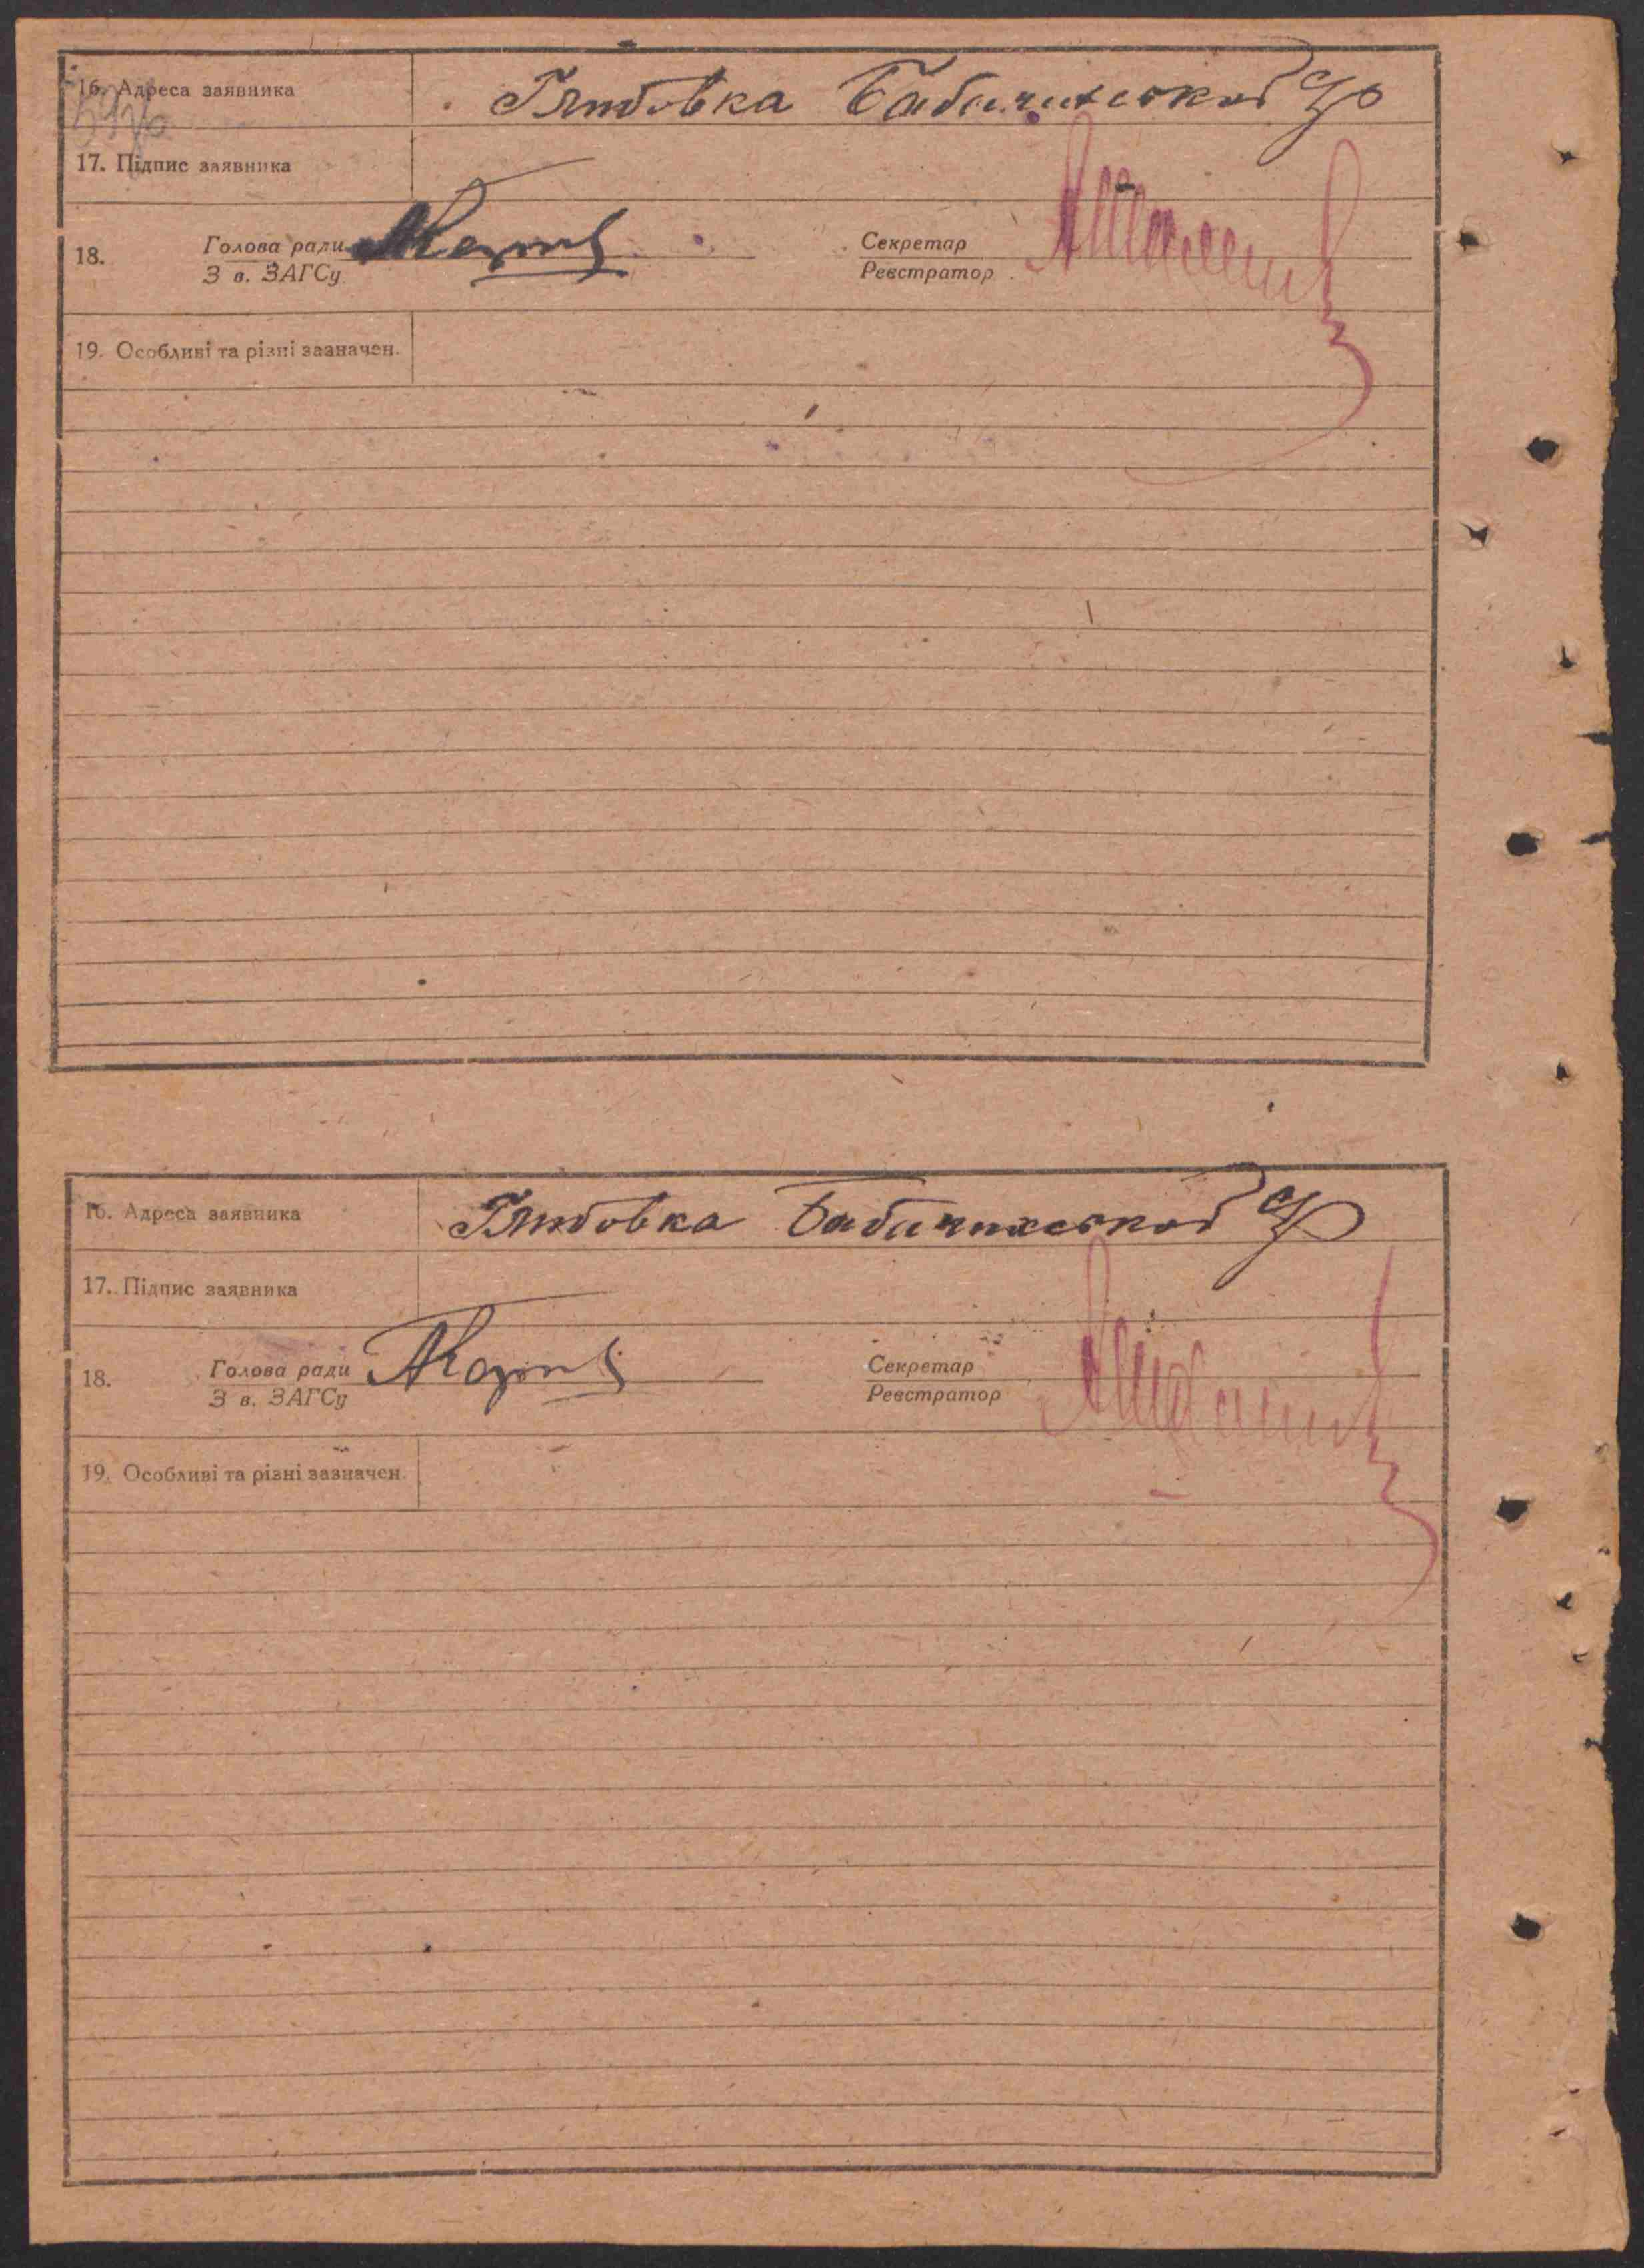 16. Адреса заявника Глибовка Бабичинської с/р
17. Підпис заявника
18. Голова ради
З в. ЗАГСу
Секретар
Реєстратор
19. Особливі та різні зазначен.
16. Адреса заявника Глибовка Бабичинської с/р
17. Підпис заявника
18. Голова ради
З в. ЗАГСу
Секретар
Реєстратор
19. Особливі та різні зазначен.